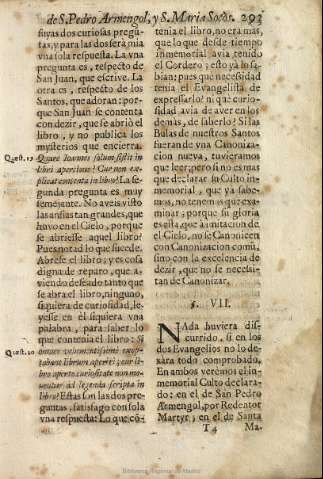 de S. Pedro Armengol, y S. Maria Socòs. 293
suyas dos curiosas pregũ-
tas, y para las dos será mia
vna sola respuesta. La vna
pregunta es, respecto de
San Juan, que escrive. La
otra es, respecto de los
Santos, que adoran: por-
que San Juan se contenta
con dezir, que se abriò el
libro, y no publica los
mysterios que encierra.
Quæst. 19 Quare Ioannes solum sistit in
libri apertione? Cur non ex-
plicat contenta in libro? La se-
gunda pregunta es muy
semejante. No aveis visto
las ansias tan grandes, que
huvo en el Cielo, porque
se abriesse aquel libro?
Pues notad lo que sucede.
Abrese el libro; y es cosa
digna de reparo, que a-
viendo deseado tanto que
se abra el libro, ninguno,
siquiera de curiosidad, le-
yesse en èl siquiera vna
palabra, para saber lo
que contenia el libro: Si
Quæst. 20 omnes
librum aperiri; cur li-
bro aperto curiositate non mo-
ventur ad legenda scripta in
libro? Estas son las dos pre-
guntas, satisfago con sola
vna respuesta: Lo que cõ-
tenia el libro, no era mas,
que lo que desde tiempo
inmemorial avia tenido
el Cordero; esto ya lo sa-
bian: pues què necessidad
tenia el Evangelista de
expressarlo? ni què curio-
sidad avia de aver en los
demàs, de saberlo? Si las
Bulas de nuestros Santos
fueran de vna Canoniza-
cion nueva, tuvieramos
que leer; pero si no es mas
que declarar su Culto in-
memorial, que ya sabe-
mos, no tenemos que exa-
minar; porque su gloria
es esta, que à imitacion de
el Cielo, no se Canonicen
con Canonizacion comũ,
sino con la excelencia de
dezir, que no se necessi-
tan de Canonizar.
§. VII.
NAda huviera dis-
currido, si en los
dos Evangelios no lo de-
xara todo comprobado.
En ambos verèmos el in-
memorial Culto declara-
do: en el de San Pedro
Armengol, por Redentor
Martyr, en el de Santa
T 4 Ma.
Biblioteca Regional de Madrid